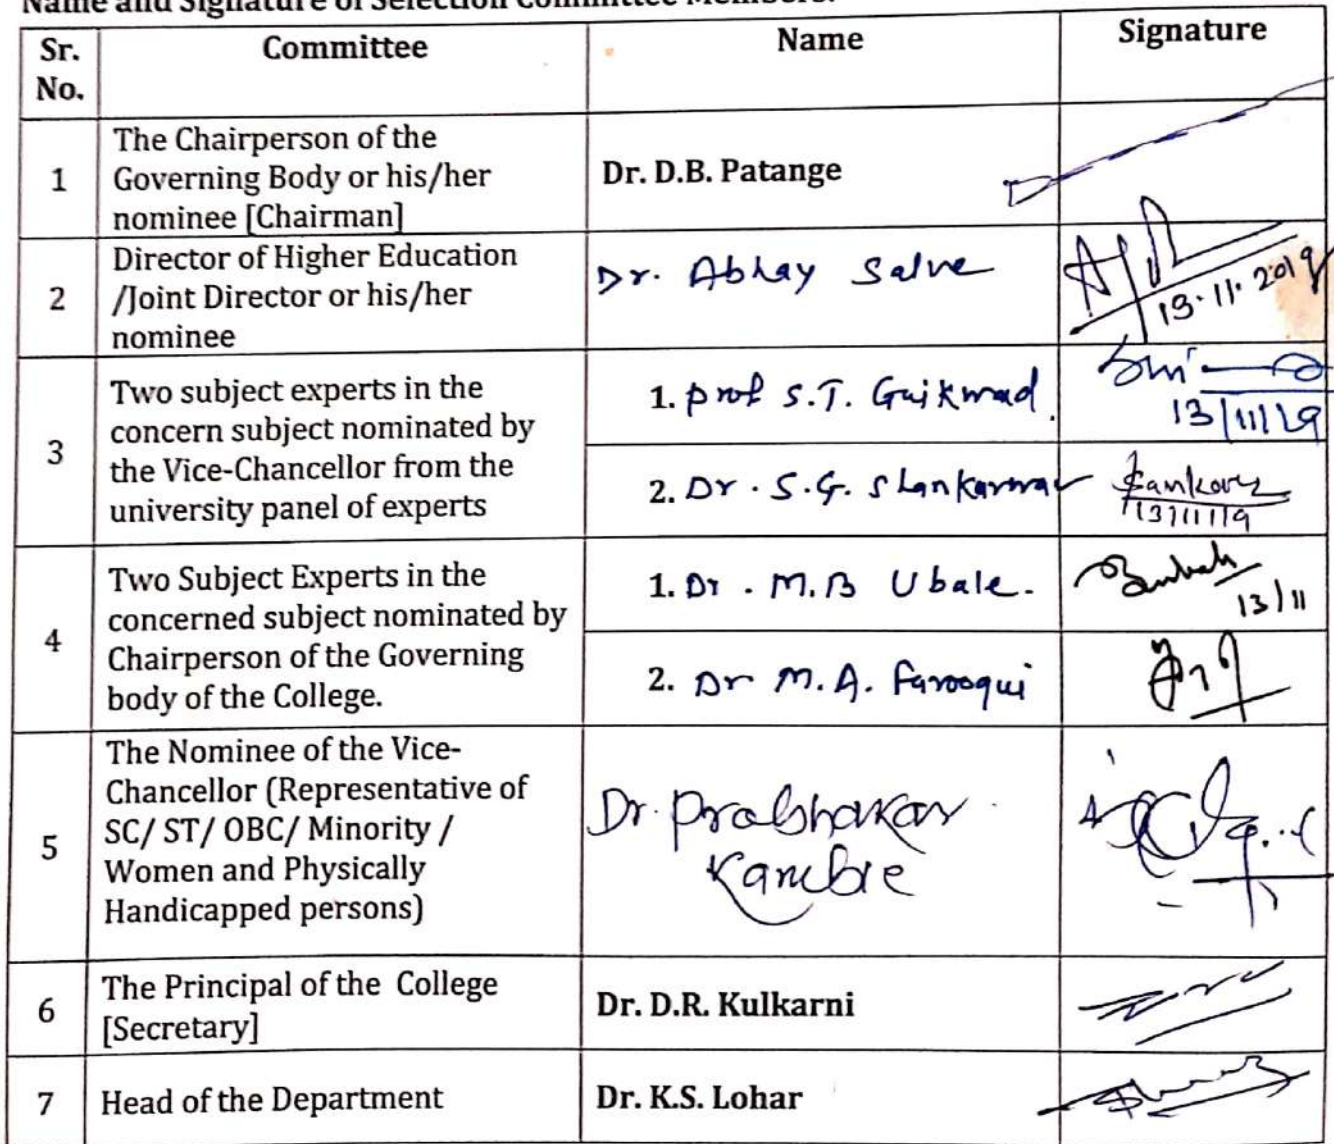 Name and Signature of Selection Committee Members:
Sr. No. Committee Name Signature
1 The Chairperson of the
Governing Body or his/her
nominee [Chairman]
Dr. D.B. Patange
2 Director of Higher Education
/Joint Director or his/her
nominee
Dr. Abhay Salve
13.11.2019
3 Two subject experts in the
concern subject nominated by
the Vice-Chancellor from the
university panel of experts
1. Prof S.T. Gaikwad.
13/11/19
2. Dr. S.G. Shankarwar
13/11/19
4 Two Subject Experts in the
concerned subject nominated by
Chairperson of the Governing
body of the College.
1. Dr. M.B Ubale.
13/11
2. Dr M.A. Farooqui
5 The Nominee of the Vice-
Chancellor (Representative of
SC/ ST/ OBC/ Minority /
Women and Physically
Handicapped persons)
Dr. Prabhakar
Kamble
6 The Principal of the College
[Secretary]
Dr. D.R. Kulkarni
7 Head of the Department
Dr. K.S. Lohar